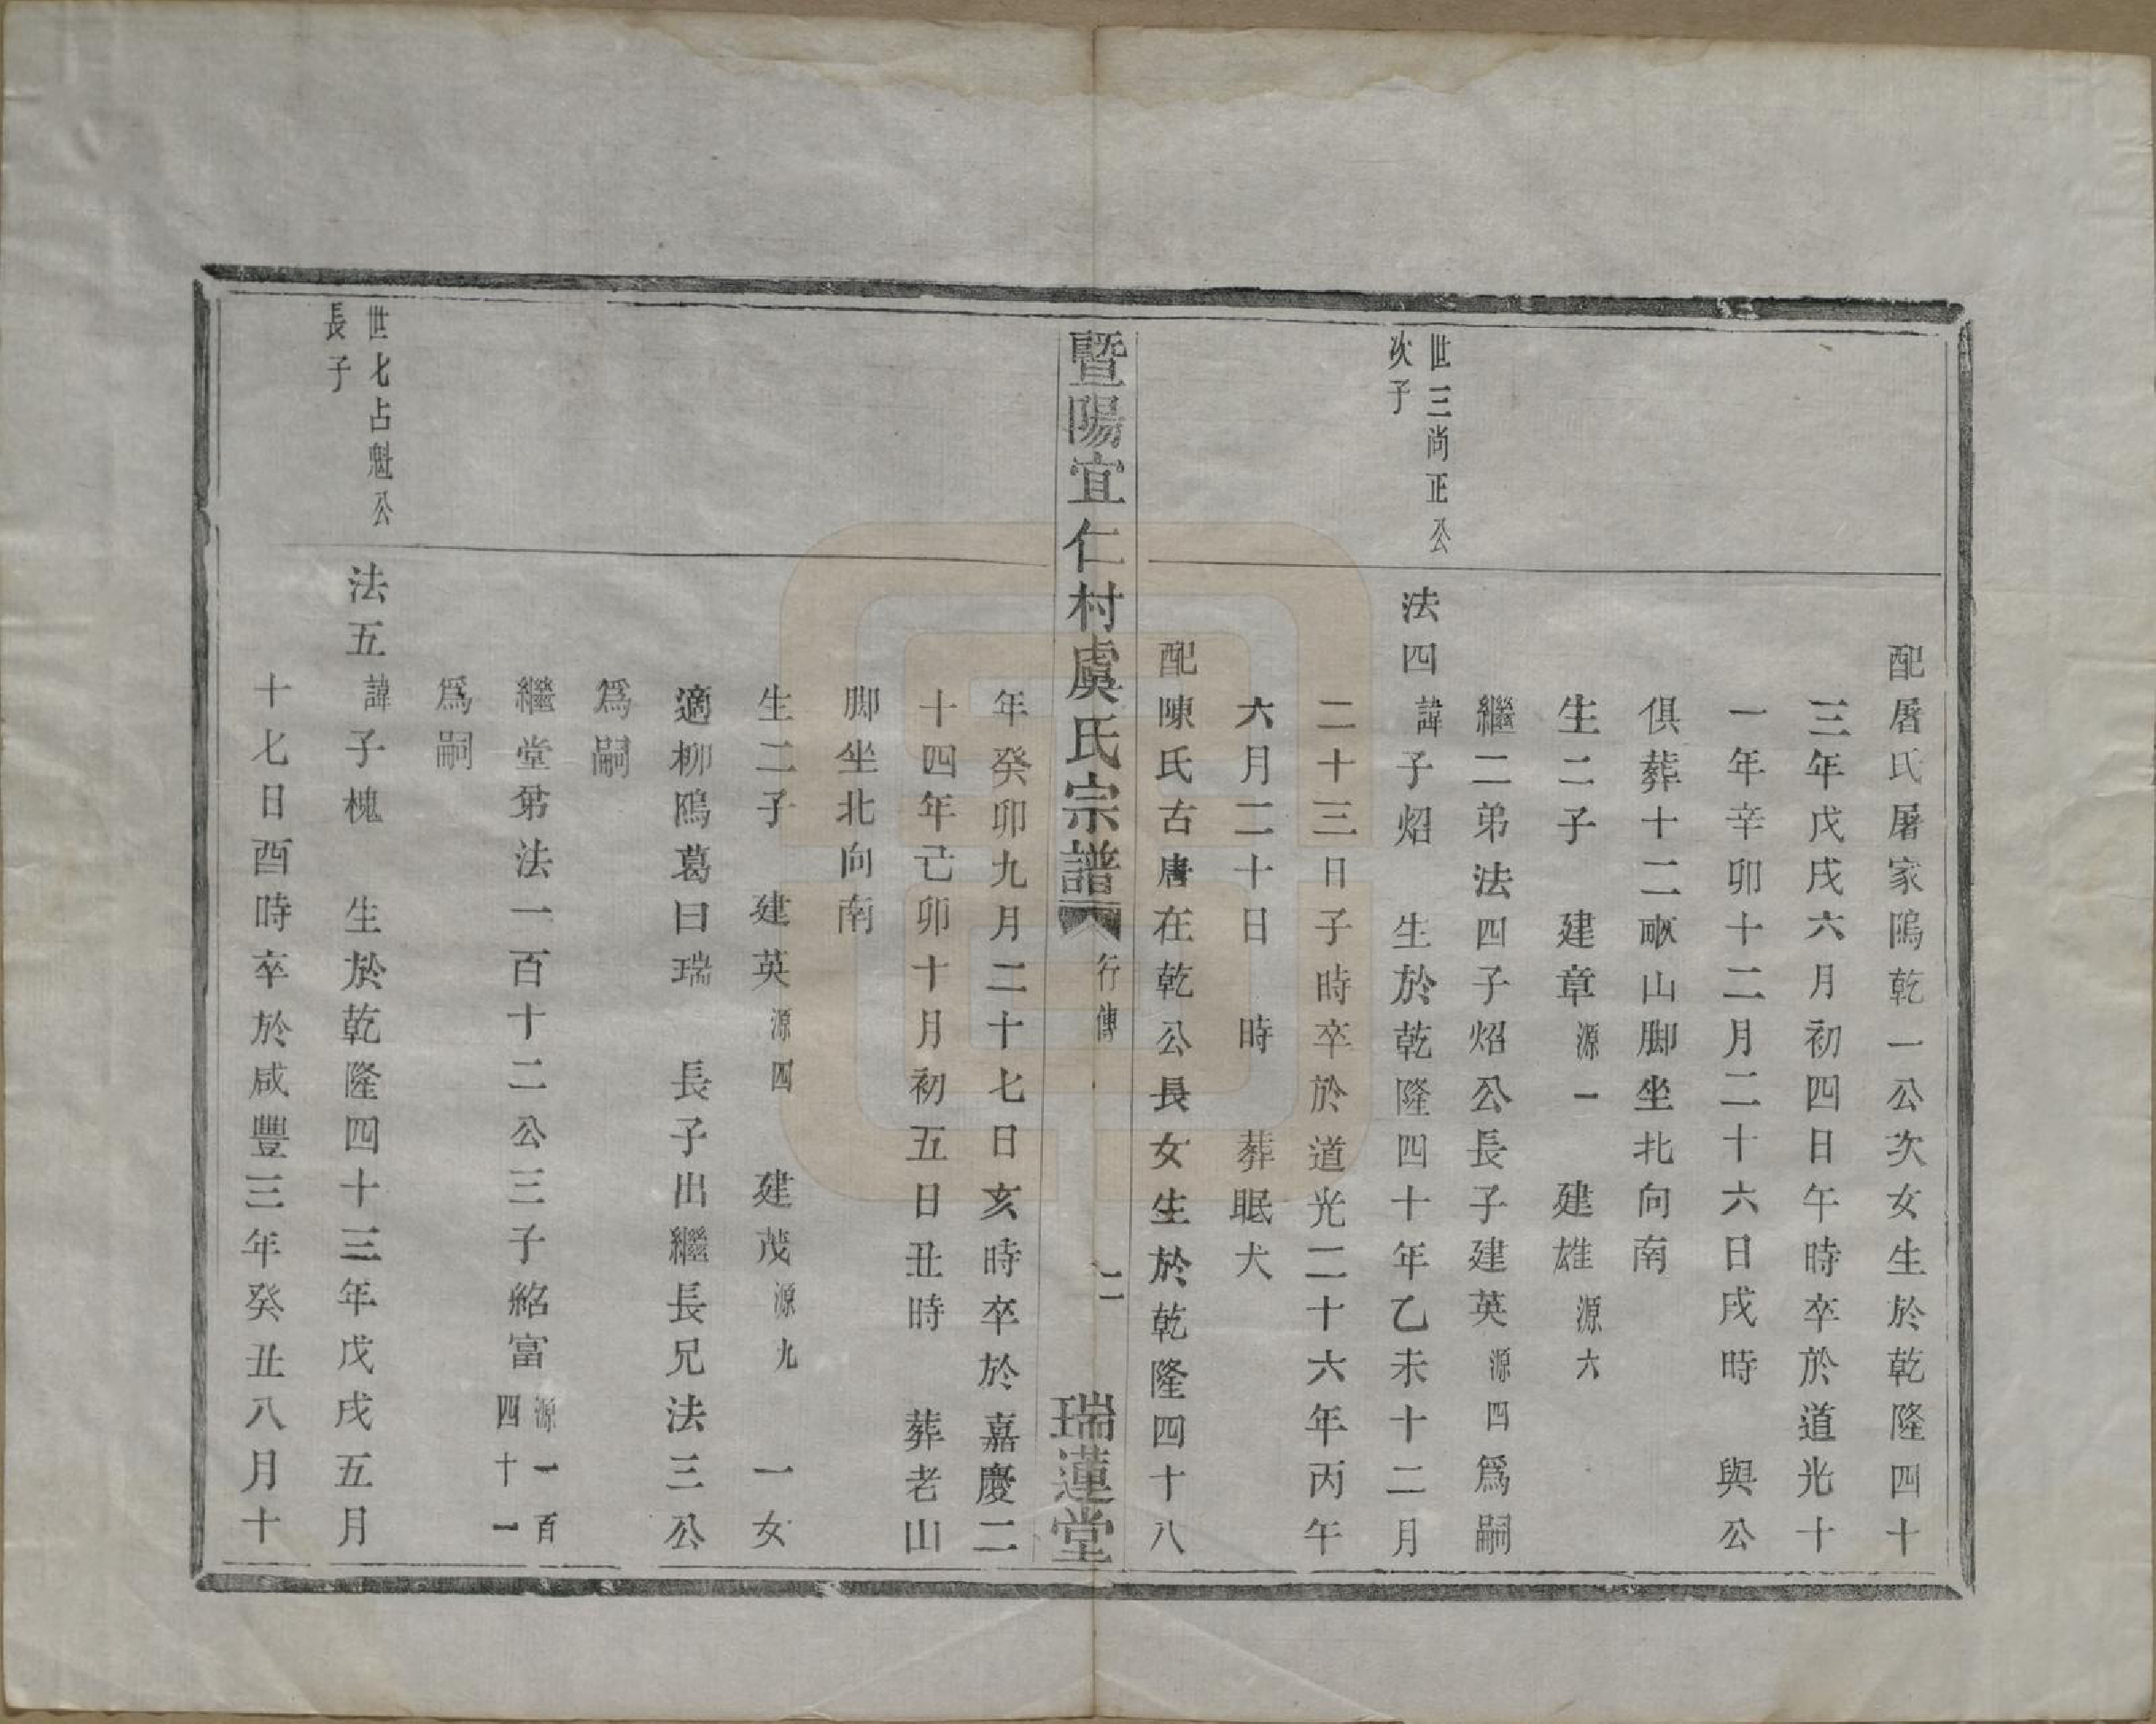 配屠氏屠家隖乾一公次女生於乾隆四十
三年戊戌六月初四日午時卒於道光十
一年辛卯十二月二十六日戌時 與公
俱葬十二畝山脚坐北向南
生二子 建章源一 建雄源六
繼二弟法四子炤公長子建英源四爲嗣
世三尚正公
次子
法四諱子炤 生於乾隆四十年乙未十二月
二十三日子時卒於道光二十六年丙午
六月二十日 時 葬眠犬
配陳氏古唐在乾公長女生於乾隆四十八
暨陽宜仁村虞氏宗譜 行傳 二 瑞蓮堂
年癸卯九月二十七日亥時卒於嘉慶二
十四年己卯十月初五日丑時 葬老山
脚坐北向南
生二子 建英源四 建茂源九 一女
適柳隖葛曰瑞 長子出繼長兄法三公
爲嗣
繼堂弟法一百十二公三子紹富源一百四十一
爲嗣
世七占魁公
長子
法五諱子槐 生於乾隆四十三年戊戌五月
十七日酉時卒於咸豐三年癸丑八月十